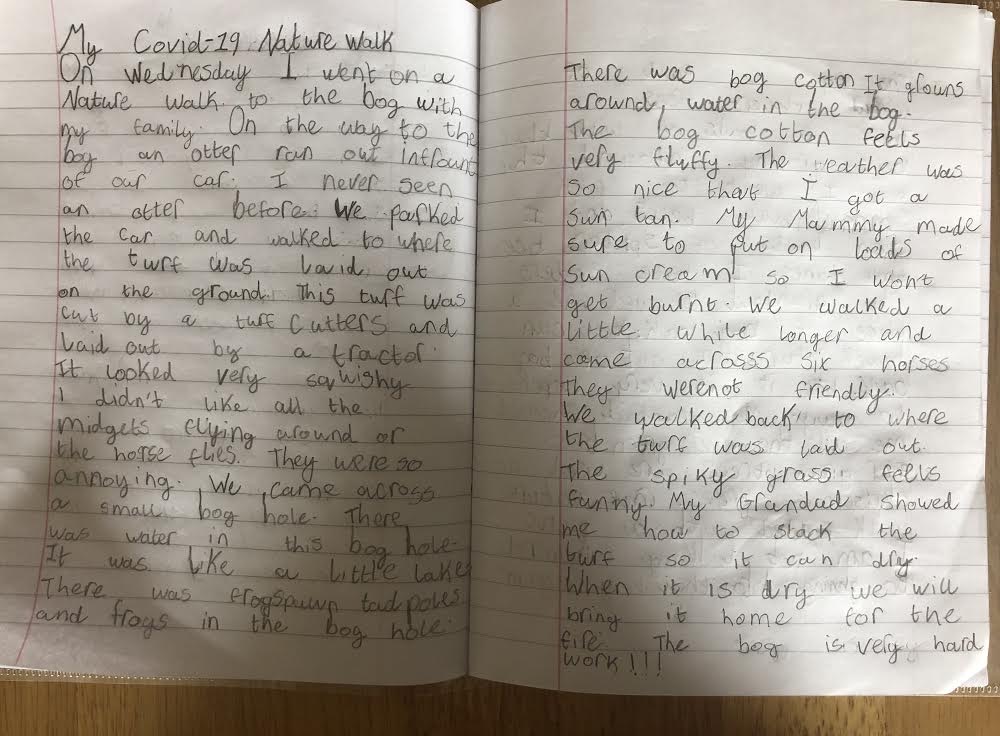 My Covid-19 Nature Walk
On Wednesday I went on a
Nature walk to the bog with
my family. On the way to the
bog an otter ran out infrount
of our car. I never seen
an otter before. We parked
the car and walked to where
the turf was laid out
on the ground. This turf was
cut by a turf cutters and
laid out by a tractor.
It looked very sqwishy
I didn't like all the
midgets flying around or
the horse flies. They were so
annoying. We came across
a small bog hole. There
was water in this bog hole.
It was like a little lake
There was frogspawn tadpoles
and frogs in the bog hole.
There was bog cotton It grouns
around, water in the bog.
The bog cotton feels
very fluffy. The weather was
so nice that I got a
sun tan. My Mammy made
sure to put on loads of
sun cream so I wont
get burnt. We walked a
little while longer and
came acrosss six horses
They werenot friendly.
We walked back to where
the turf was laid out.
The spiky grass feels
funny. My Grandad showed
me how to stack the
turf so it can dry.
When it is dry we will
bring it home for the
fire. The bog is very hard
work!!!